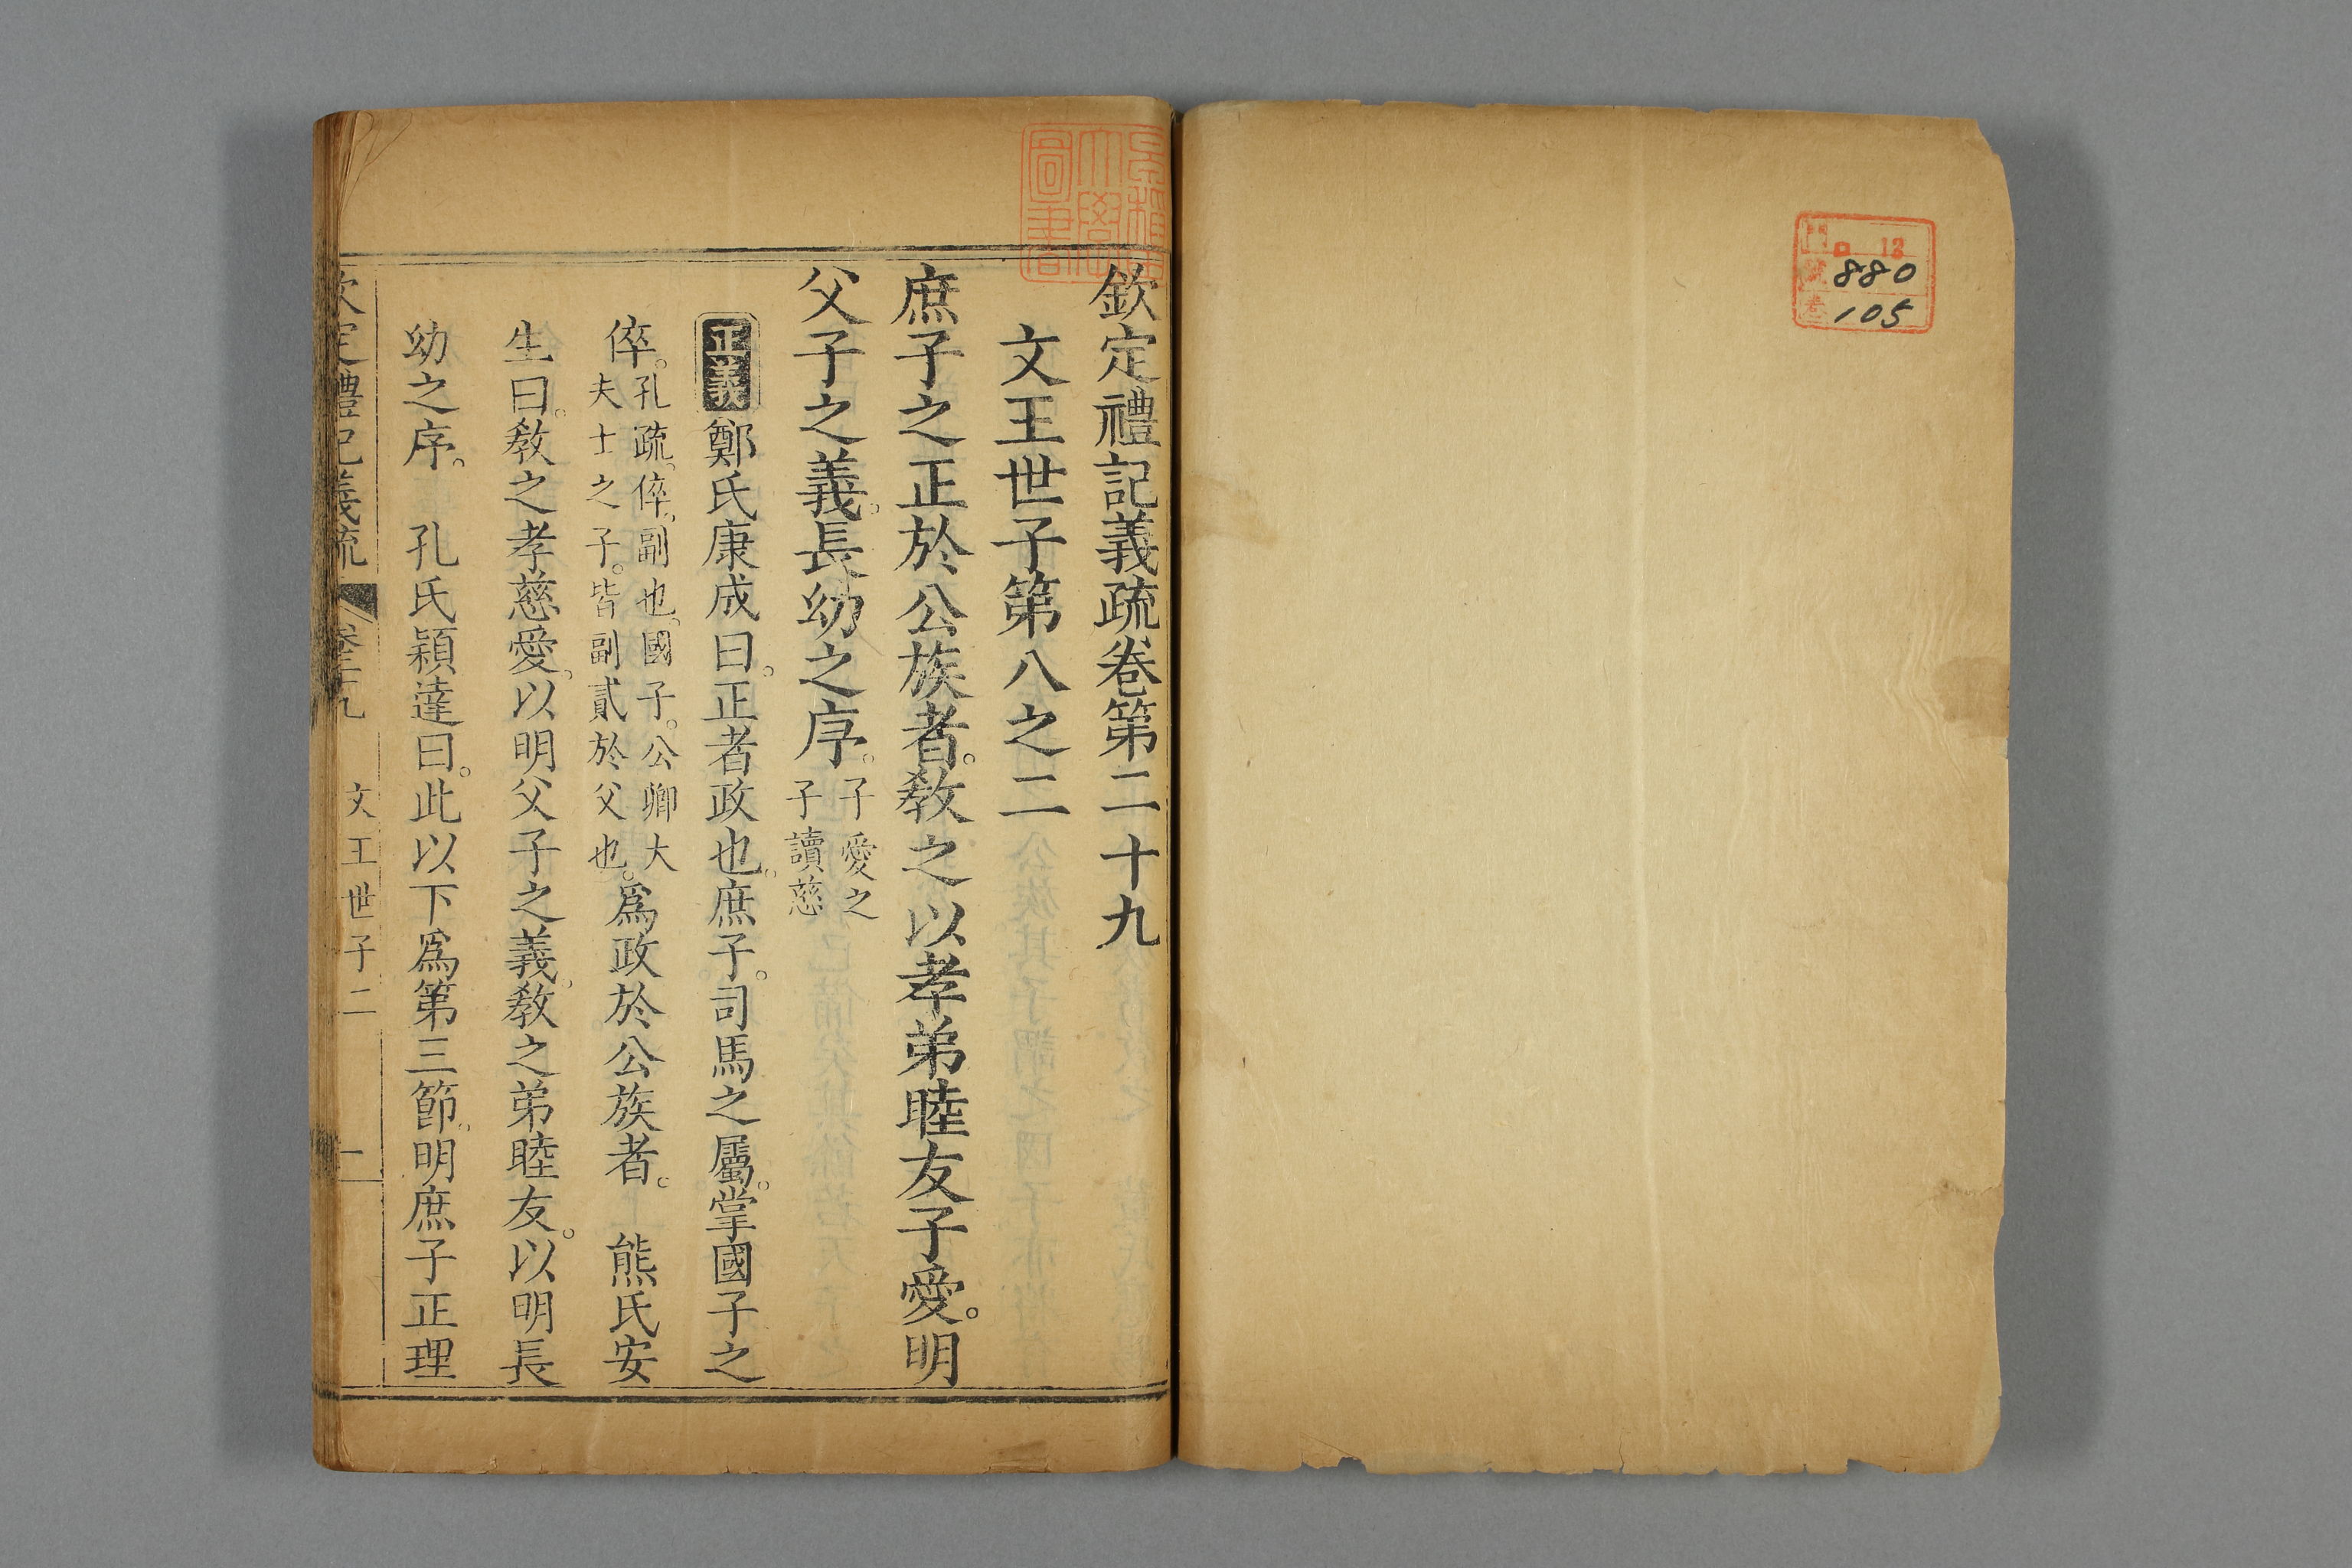 門 ロ 13
號 880
卷 105
欽定禮記義疏卷第二十九
文王世子第八之二
庶子之正於公族者。教之以孝弟睦友子愛。明
父子之義。長幼之序。子愛之子讀慈
正義 鄭氏康成曰。正者政也。庶子。司馬之屬。掌國子之
倅。孔疏。倅。副也。國子。公卿大夫士之子。皆副貳於父也。為政於公族者。 熊氏安
生曰。教之孝慈愛。以明父子之義。教之弟睦友。以明長
幼之序。 孔氏穎達曰。此以下為第三節。明庶子正理
欽定禮記義疏 卷二十九 文王世子二 一